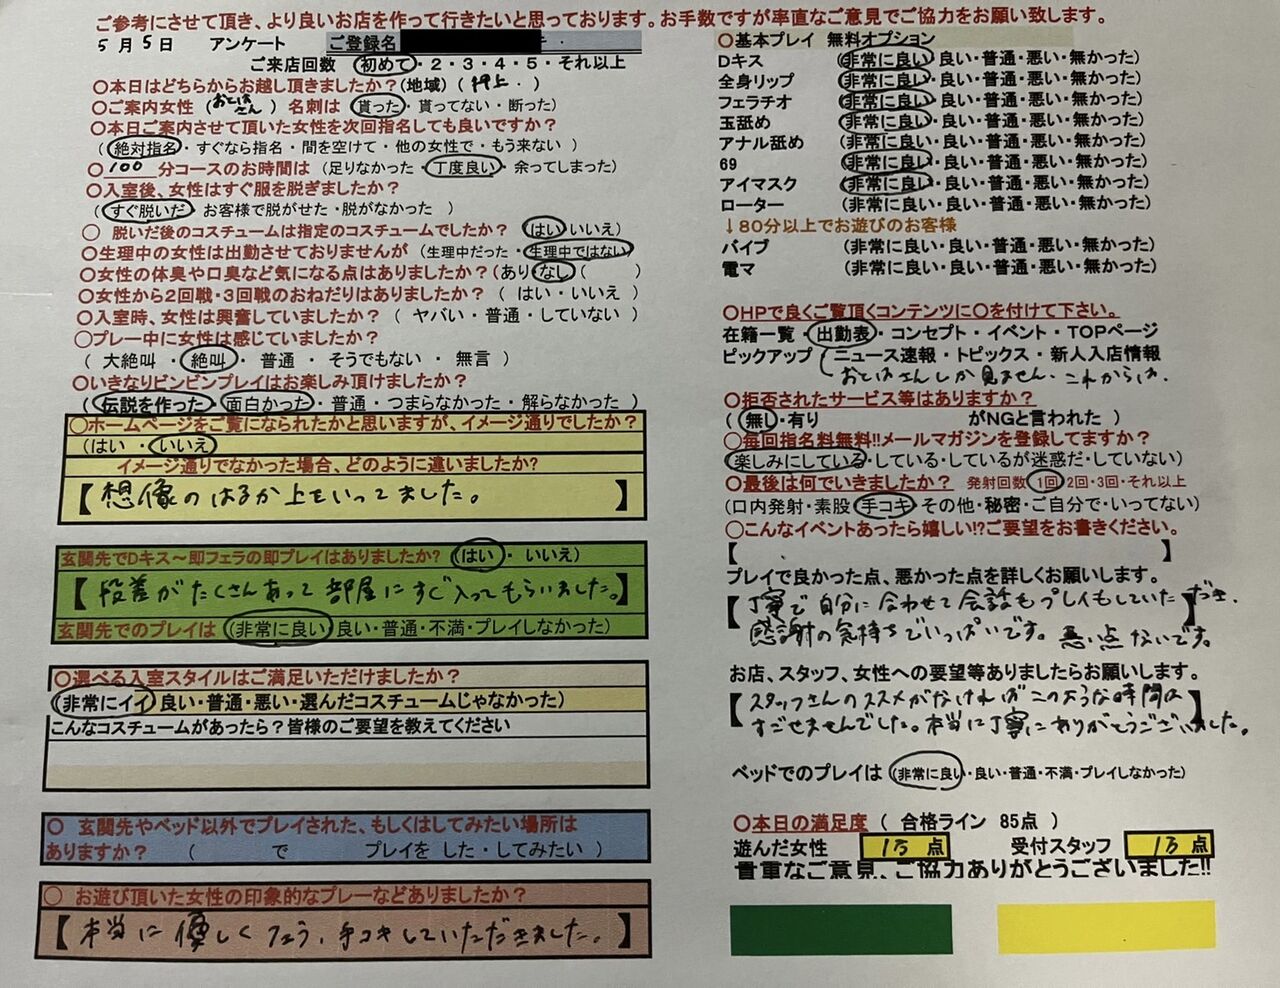 ご参考にさせて頂き、より良いお店を作って行きたいと思っております。お手数ですが率直なご意見でご協力をお願い致します。
5月5日 アンケート ご登録名
ご来店回数 初めて・2・3・4・5・それ以上
〇本日はどちらからお越し頂きましたか?(地域) (押上・)
〇ご案内女性 (おとはさん) 名刺は (貰った・貰ってない・断った)
〇本日ご案内させて頂いた女性を次回指名しても良いですか?
(絶対指名・すぐなら指名・間を空けて・他の女性で・もう来ない )
〇100分コースのお時間は (足りなかった・丁度良い・余ってしまった)
〇入室後、女性はすぐ服を脱ぎましたか?
(すぐ脱いだ・お客様で脱がせた・脱がなかった )
〇 脱いだ後のコスチュームは指定のコスチュームでしたか? (はい・いいえ)
〇生理中の女性は出勤させておりませんが (生理中だった・生理中ではない)
〇女性の体臭や口臭など気になる点はありましたか?(あり・なし ( )
〇女性から2回戦・3回戦のおねだりはありましたか? ( はい・いいえ )
〇入室時、女性は興奮していましたか? ( ヤバい・普通・していない )
〇プレー中に女性は感じていましたか?
( 大絶叫 ・ 絶叫 ・ 普通 ・ そうでもない ・ 無言 )
〇いきなりビンビンプレイはお楽しみ頂けましたか?
( 伝説を作った・面白かった・普通・つまらなかった・解らなかった )
〇ホームページをご覧になられたかと思いますが、イメージ通りでしたか?
(はい ・ いいえ)
イメージ通りでなかった場合、どのように違いましたか?
【想像のはるか上をいってました。 】
玄関先でDキス～即フェラの即プレイはありましたか? (はい・ いいえ)
【段差がたくさんあって部屋にすぐ入ってもらいました。】
玄関先でのプレイは (非常に良い・良い・普通・不満・プレイしなかった)
〇選べる入室スタイルはご満足いただけましたか?
(非常にイイ・良い・普通・悪い・選んだコスチュームじゃなかった)
こんなコスチュームがあったら?皆様のご要望を教えてください
〇 玄関先やベッド以外でプレイされた、もしくはしてみたい場所は
ありますか? ( で プレイを した・してみたい )
〇 お遊び頂いた女性の印象的なプレーなどありましたか?
【本当に優しくフェラ、手コキしていただきました。】
〇基本プレイ 無料オプション
Dキス (非常に良い・良い・普通・悪い・無かった)
全身リップ (非常に良い・良い・普通・悪い・無かった)
フェラチオ (非常に良い・良い・普通・悪い・無かった)
玉舐め (非常に良い・良い・普通・悪い・無かった)
アナル舐め (非常に良い・良い・普通・悪い・無かった)
69 (非常に良い・良い・普通・悪い・無かった)
アイマスク (非常に良い・良い・普通・悪い・無かった)
ローター (非常に良い・良い・普通・悪い・無かった)
↓80分以上でお遊びのお客様
バイブ (非常に良い・良い・普通・悪い・無かった)
電マ (非常に良い・良い・普通・悪い・無かった)
〇HPで良くご覧頂くコンテンツに〇を付けて下さい。
在籍一覧・出勤表・コンセプト・イベント・TOPページ
ピックアップ・ニュース速報・トピックス・新人入店情報
おとはさんしか見ません。これからは。
〇拒否されたサービス等はありますか?
(無し・有り がNGと言われた )
〇毎回指名料無料!!メールマガジンを登録してますか?
(楽しみにしている・している・しているが迷惑だ・していない)
〇最後は何でいきましたか? 発射回数 1回 2回・3回・それ以上
(口内発射・素股・手コキ・その他・秘密・ご自分で・いってない)
〇こんなイベントあったら嬉しい!?ご要望をお書きください。
【 】
プレイで良かった点、悪かった点を詳しくお願いします。
【丁寧で自分に合わせて会話もプレイもしていただき、
感謝の気持ちでいっぱいです。悪い点ないです。】
お店、スタッフ、女性への要望等ありましたらお願いします。
【スタッフさんのススメがなければこのような時間は
すごせませんでした。本当に丁寧にありがとうございました。】
ベッドでのプレイは (非常に良い・良い・普通・不満・プレイしなかった)
〇本日の満足度 ( 合格ライン 85点 )
遊んだ女性 1万点 受付スタッフ 1万点
貴重なご意見、ご協力ありがとうございました!!